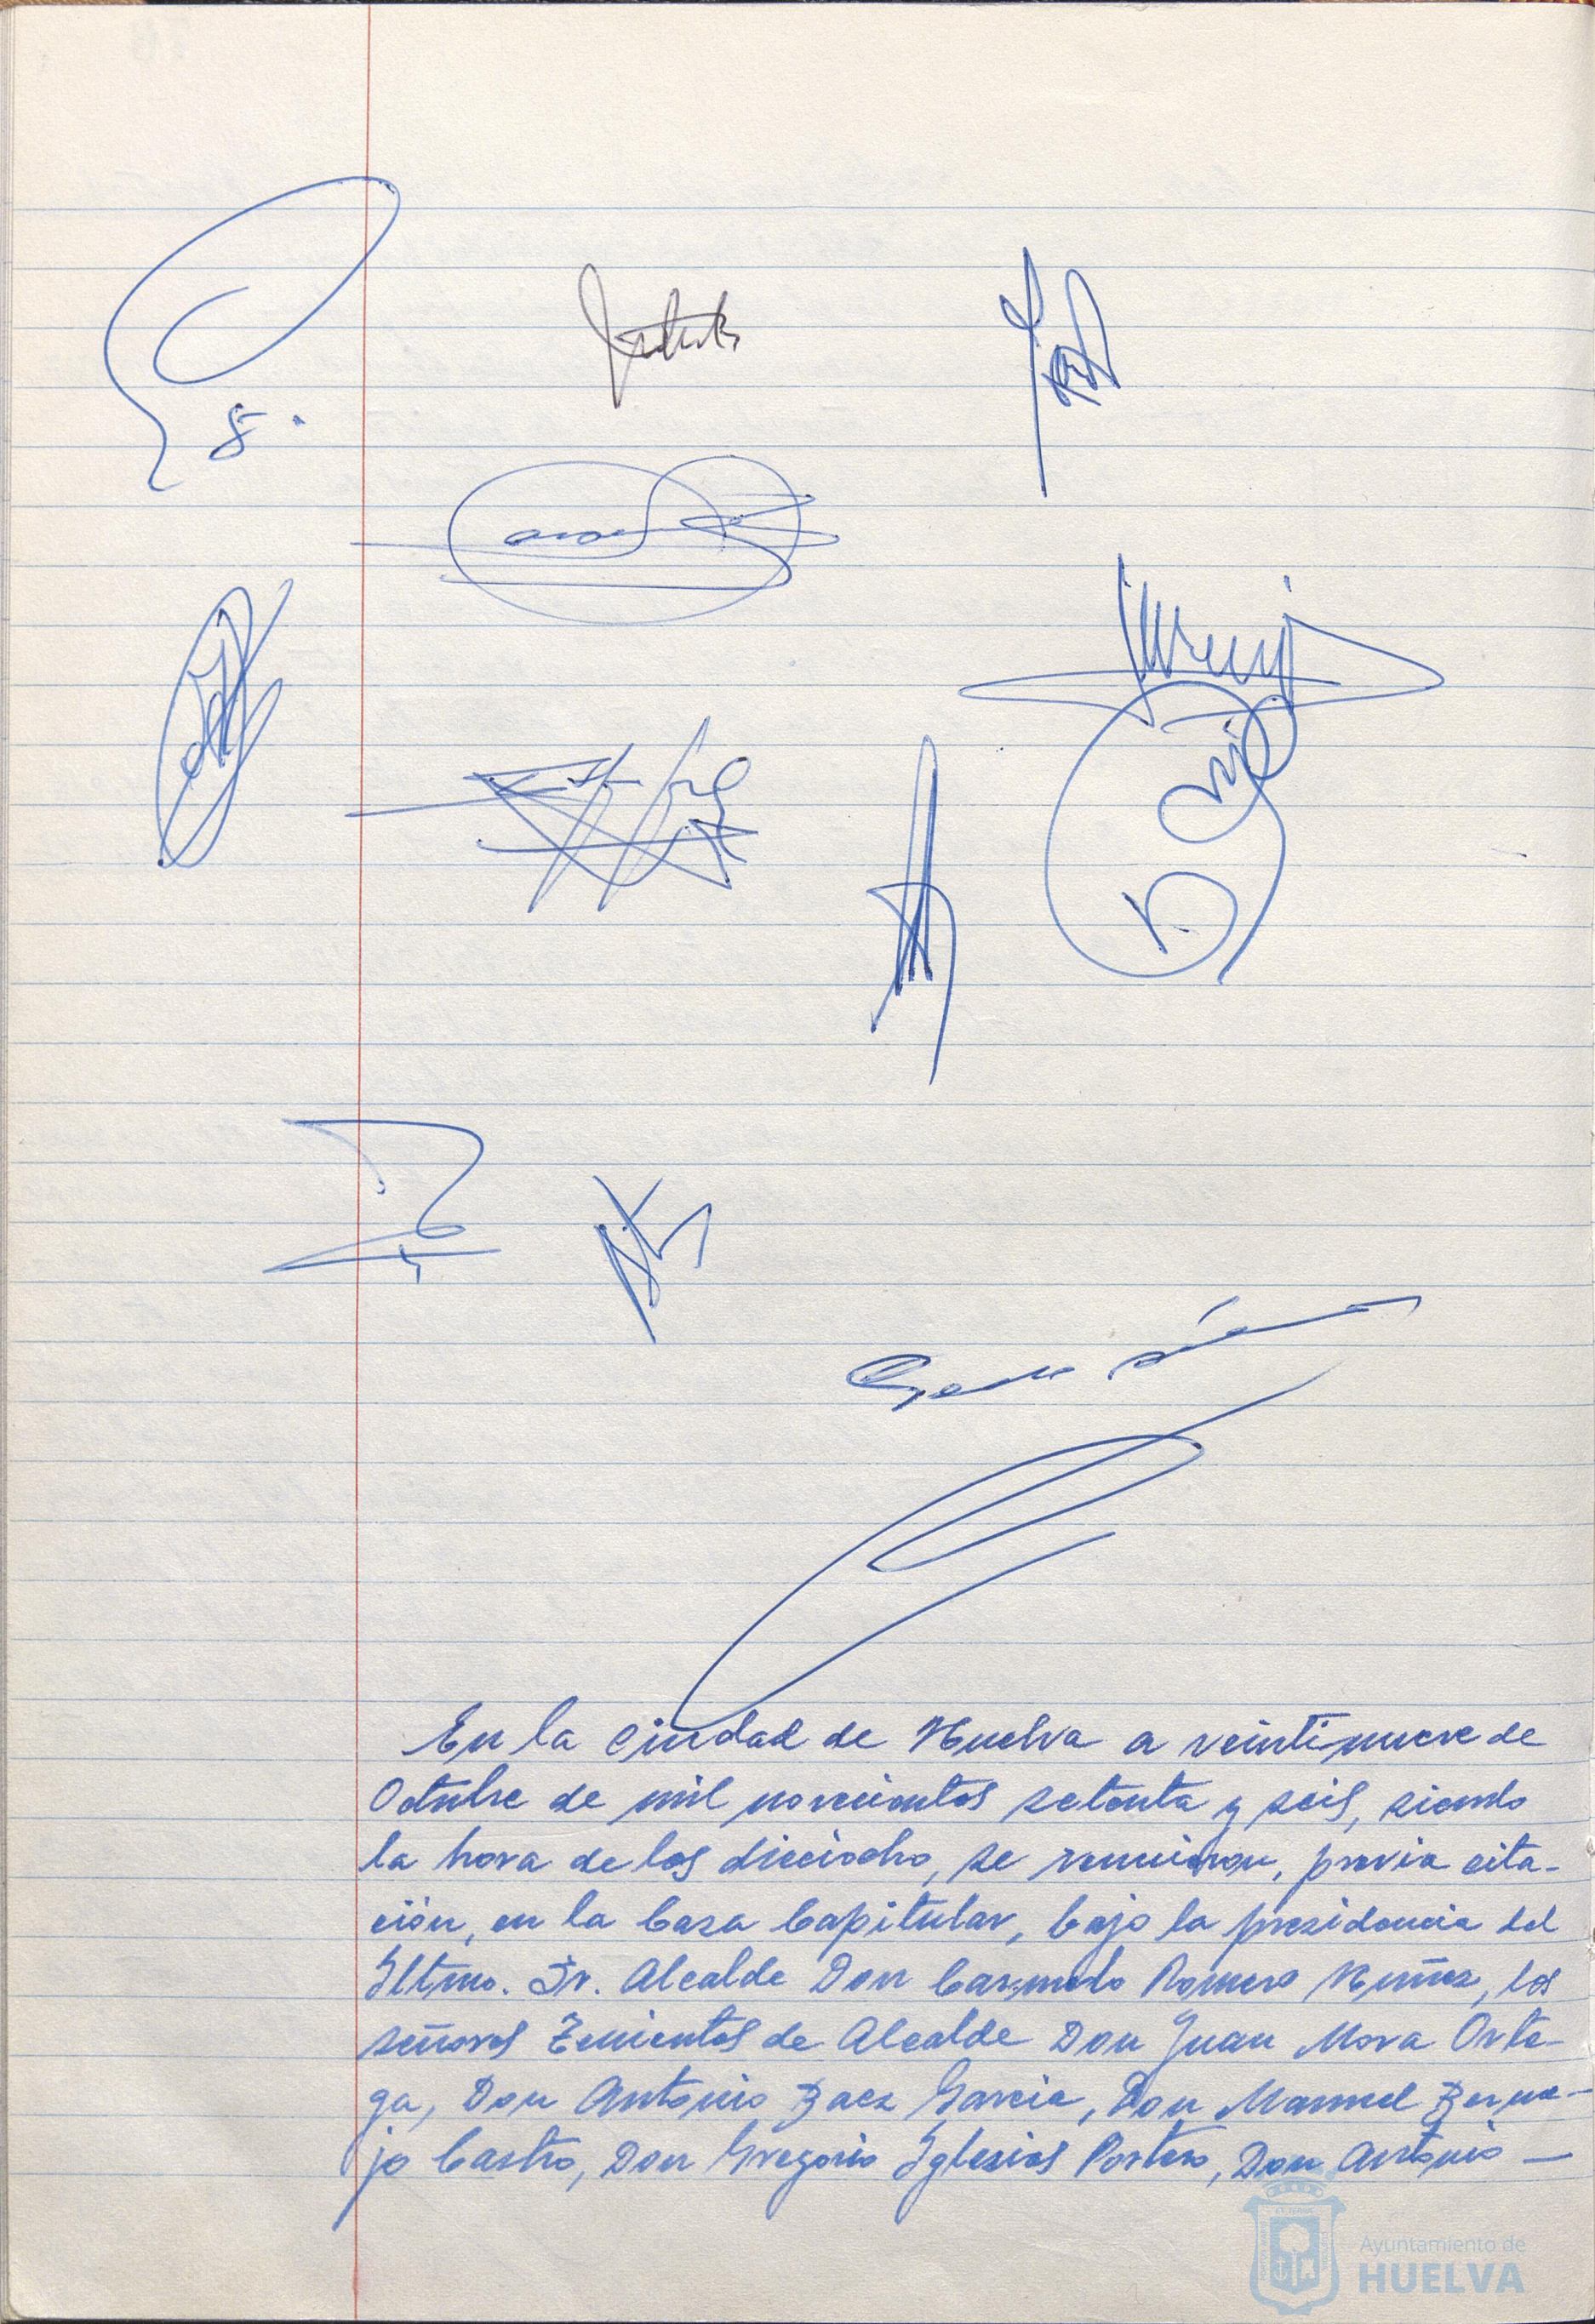 En la Ciudad de Huelva a veintinueve de
Octubre de mil novecientos setenta y seis, siendo
la hora de las dieciocho, se reunieron, previa cita-
ción, en la Casa Capitular, bajo la presidencia del
Iltmo. Sr. Alcalde Don Carmelo Romero Nuñez, los
señores Tenientes de Alcalde Don Juan Mora Orte-
ga, Don Antonio Baez Garcia, Don Manuel Berme-
jo Castro, Don Gregorio Iglesias Portero, Don Antonio —
Ayuntamiento de
HUELVA